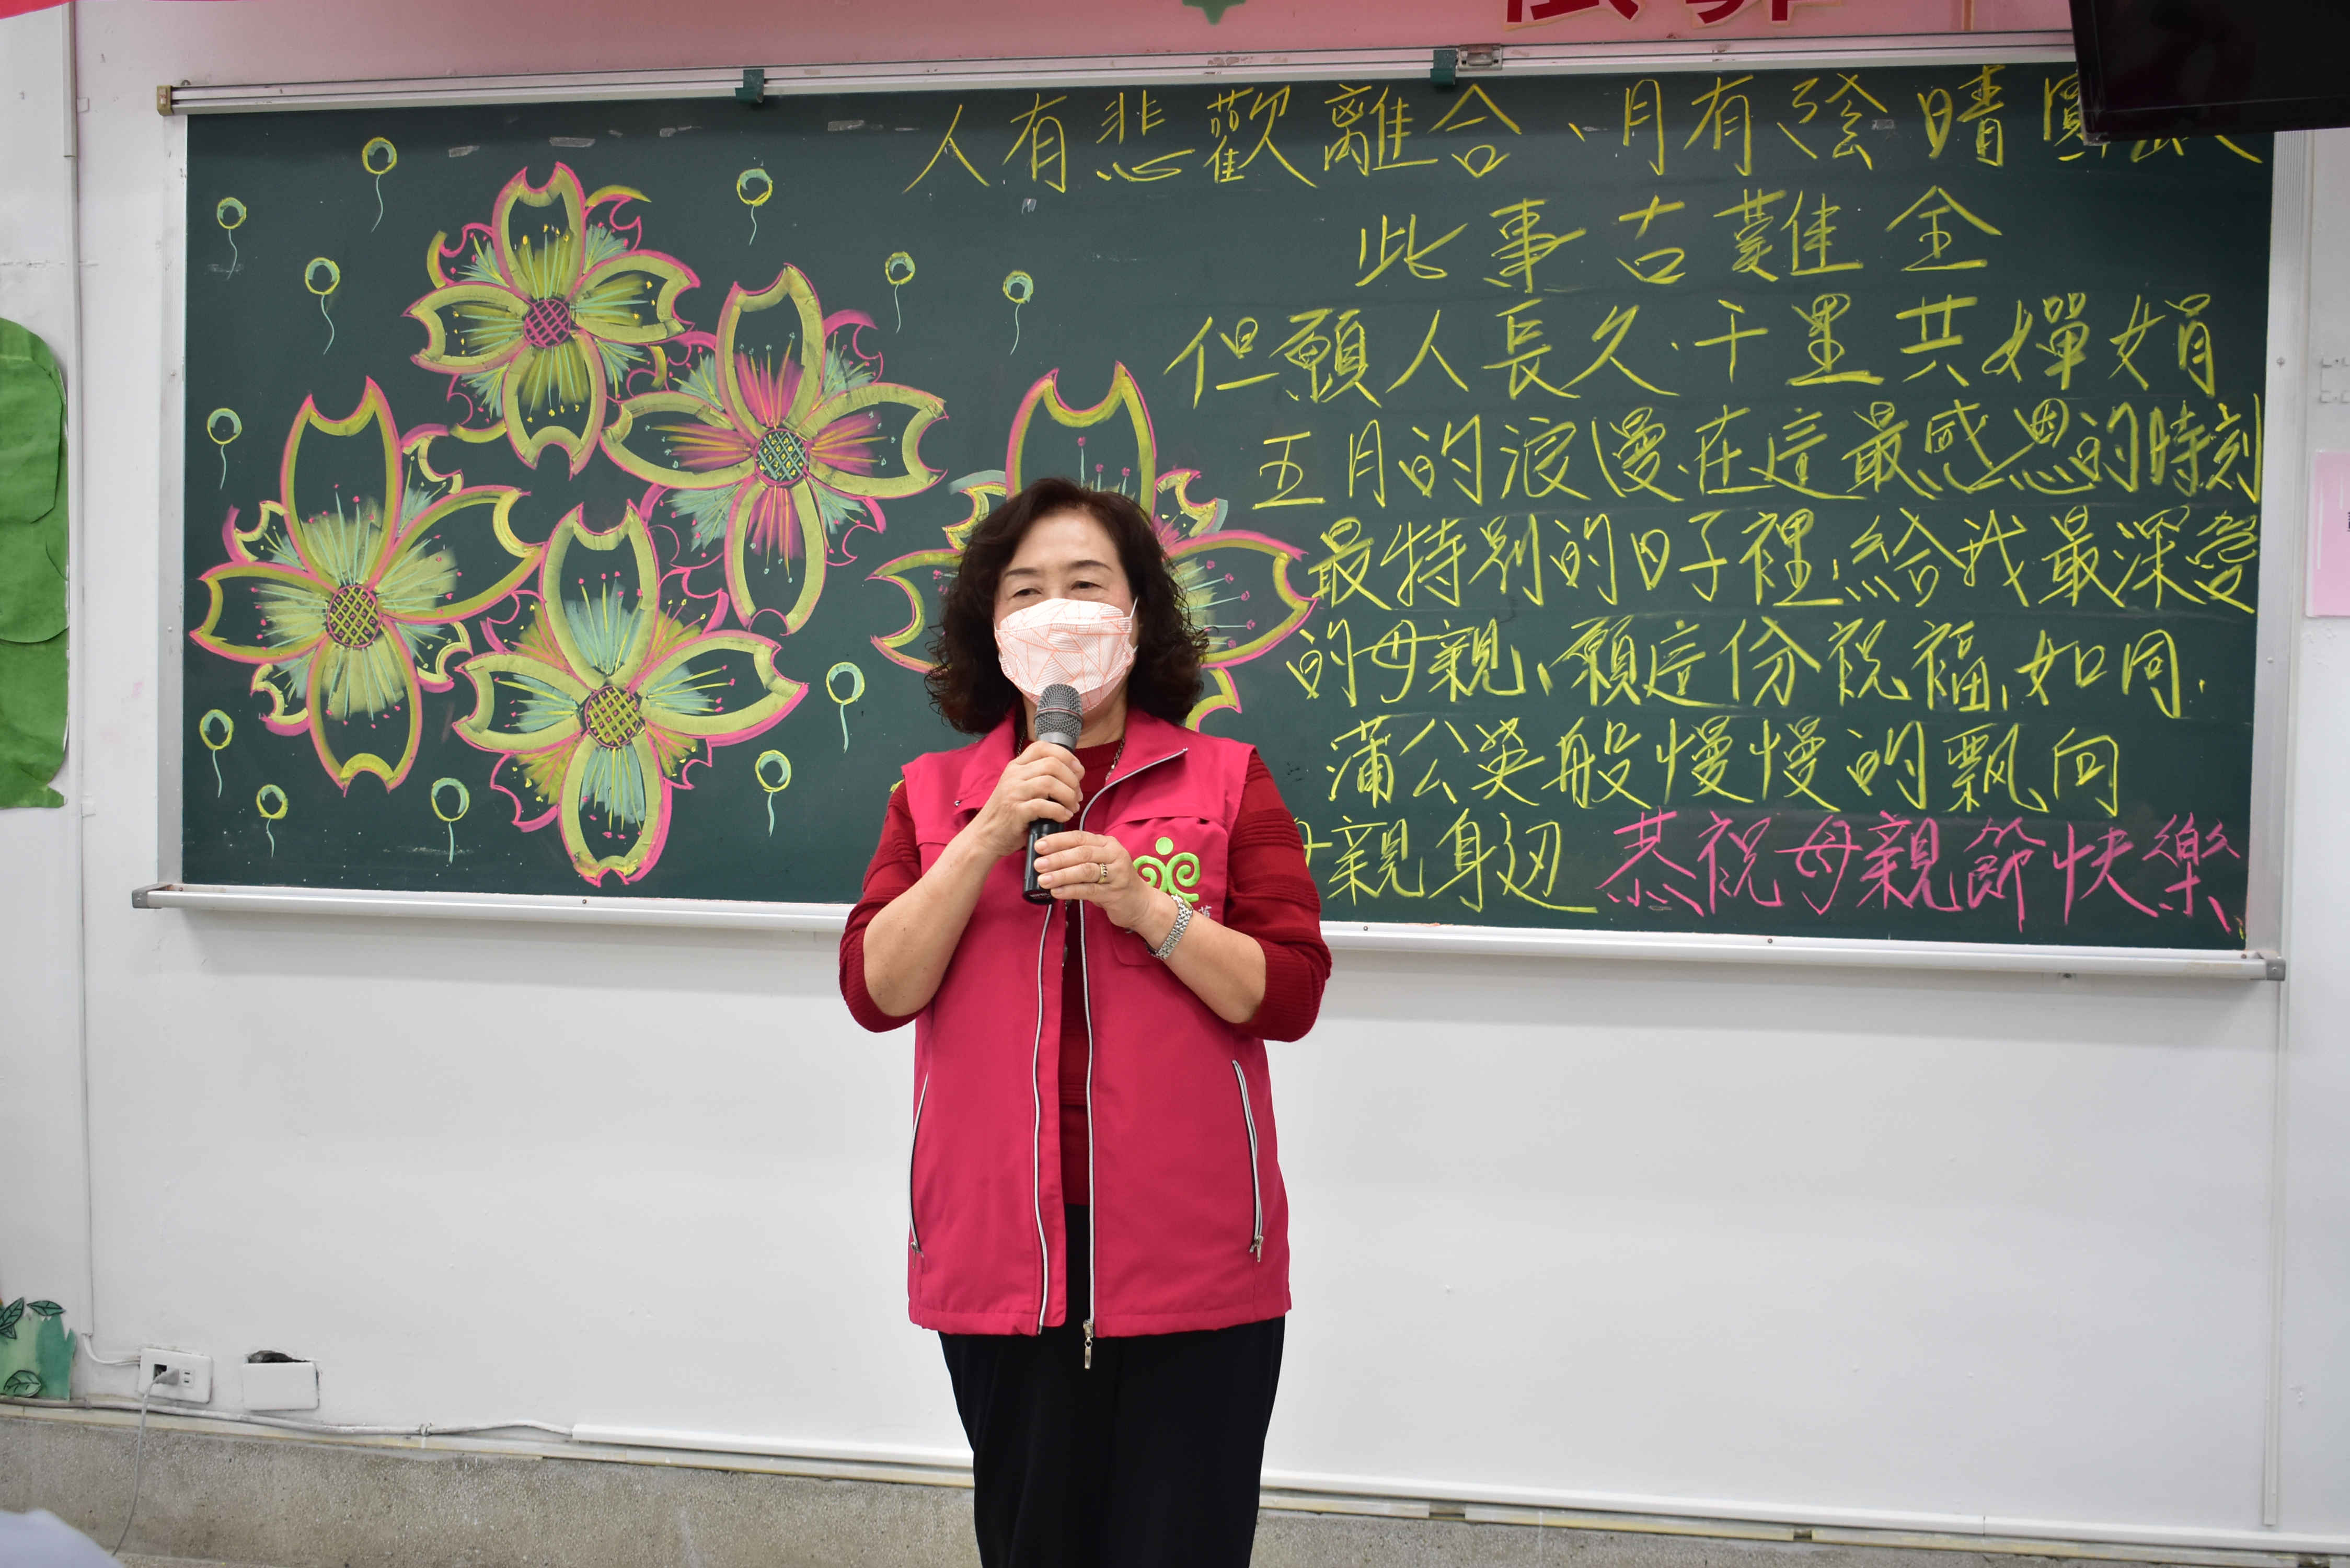 人有悲歡離合、月有陰晴圓
此事古難全
但願人長久·千里共嬋娟
五月的浪漫.在這最感恩的時刻
最特別的日子裡.給我最深愛
的母親、願這份祝福,如同.
蒲公英般慢慢的飄向
母親身边 恭祝母親節快樂